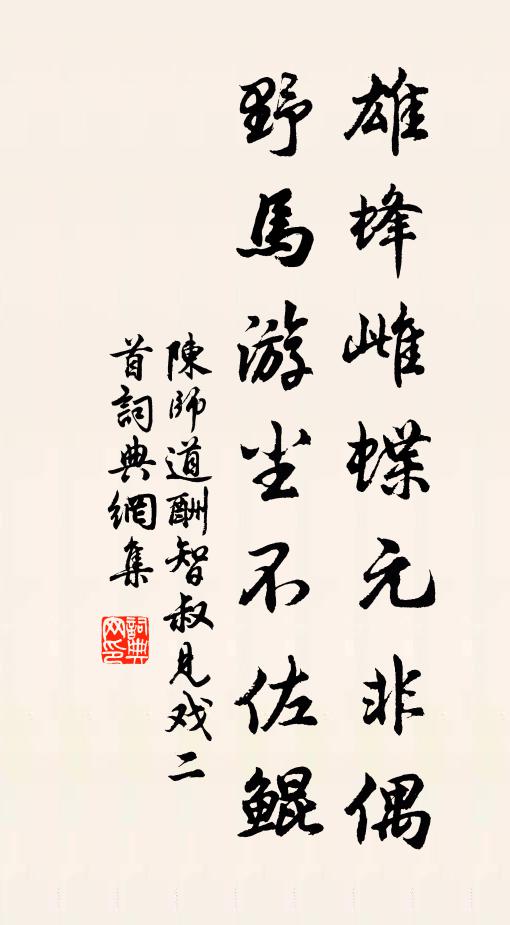 雄蜂雌蝶元非偶
野馬游尘不佐鯤
陳師道酬智叔見戏二
首詞典網集
詞典
网印